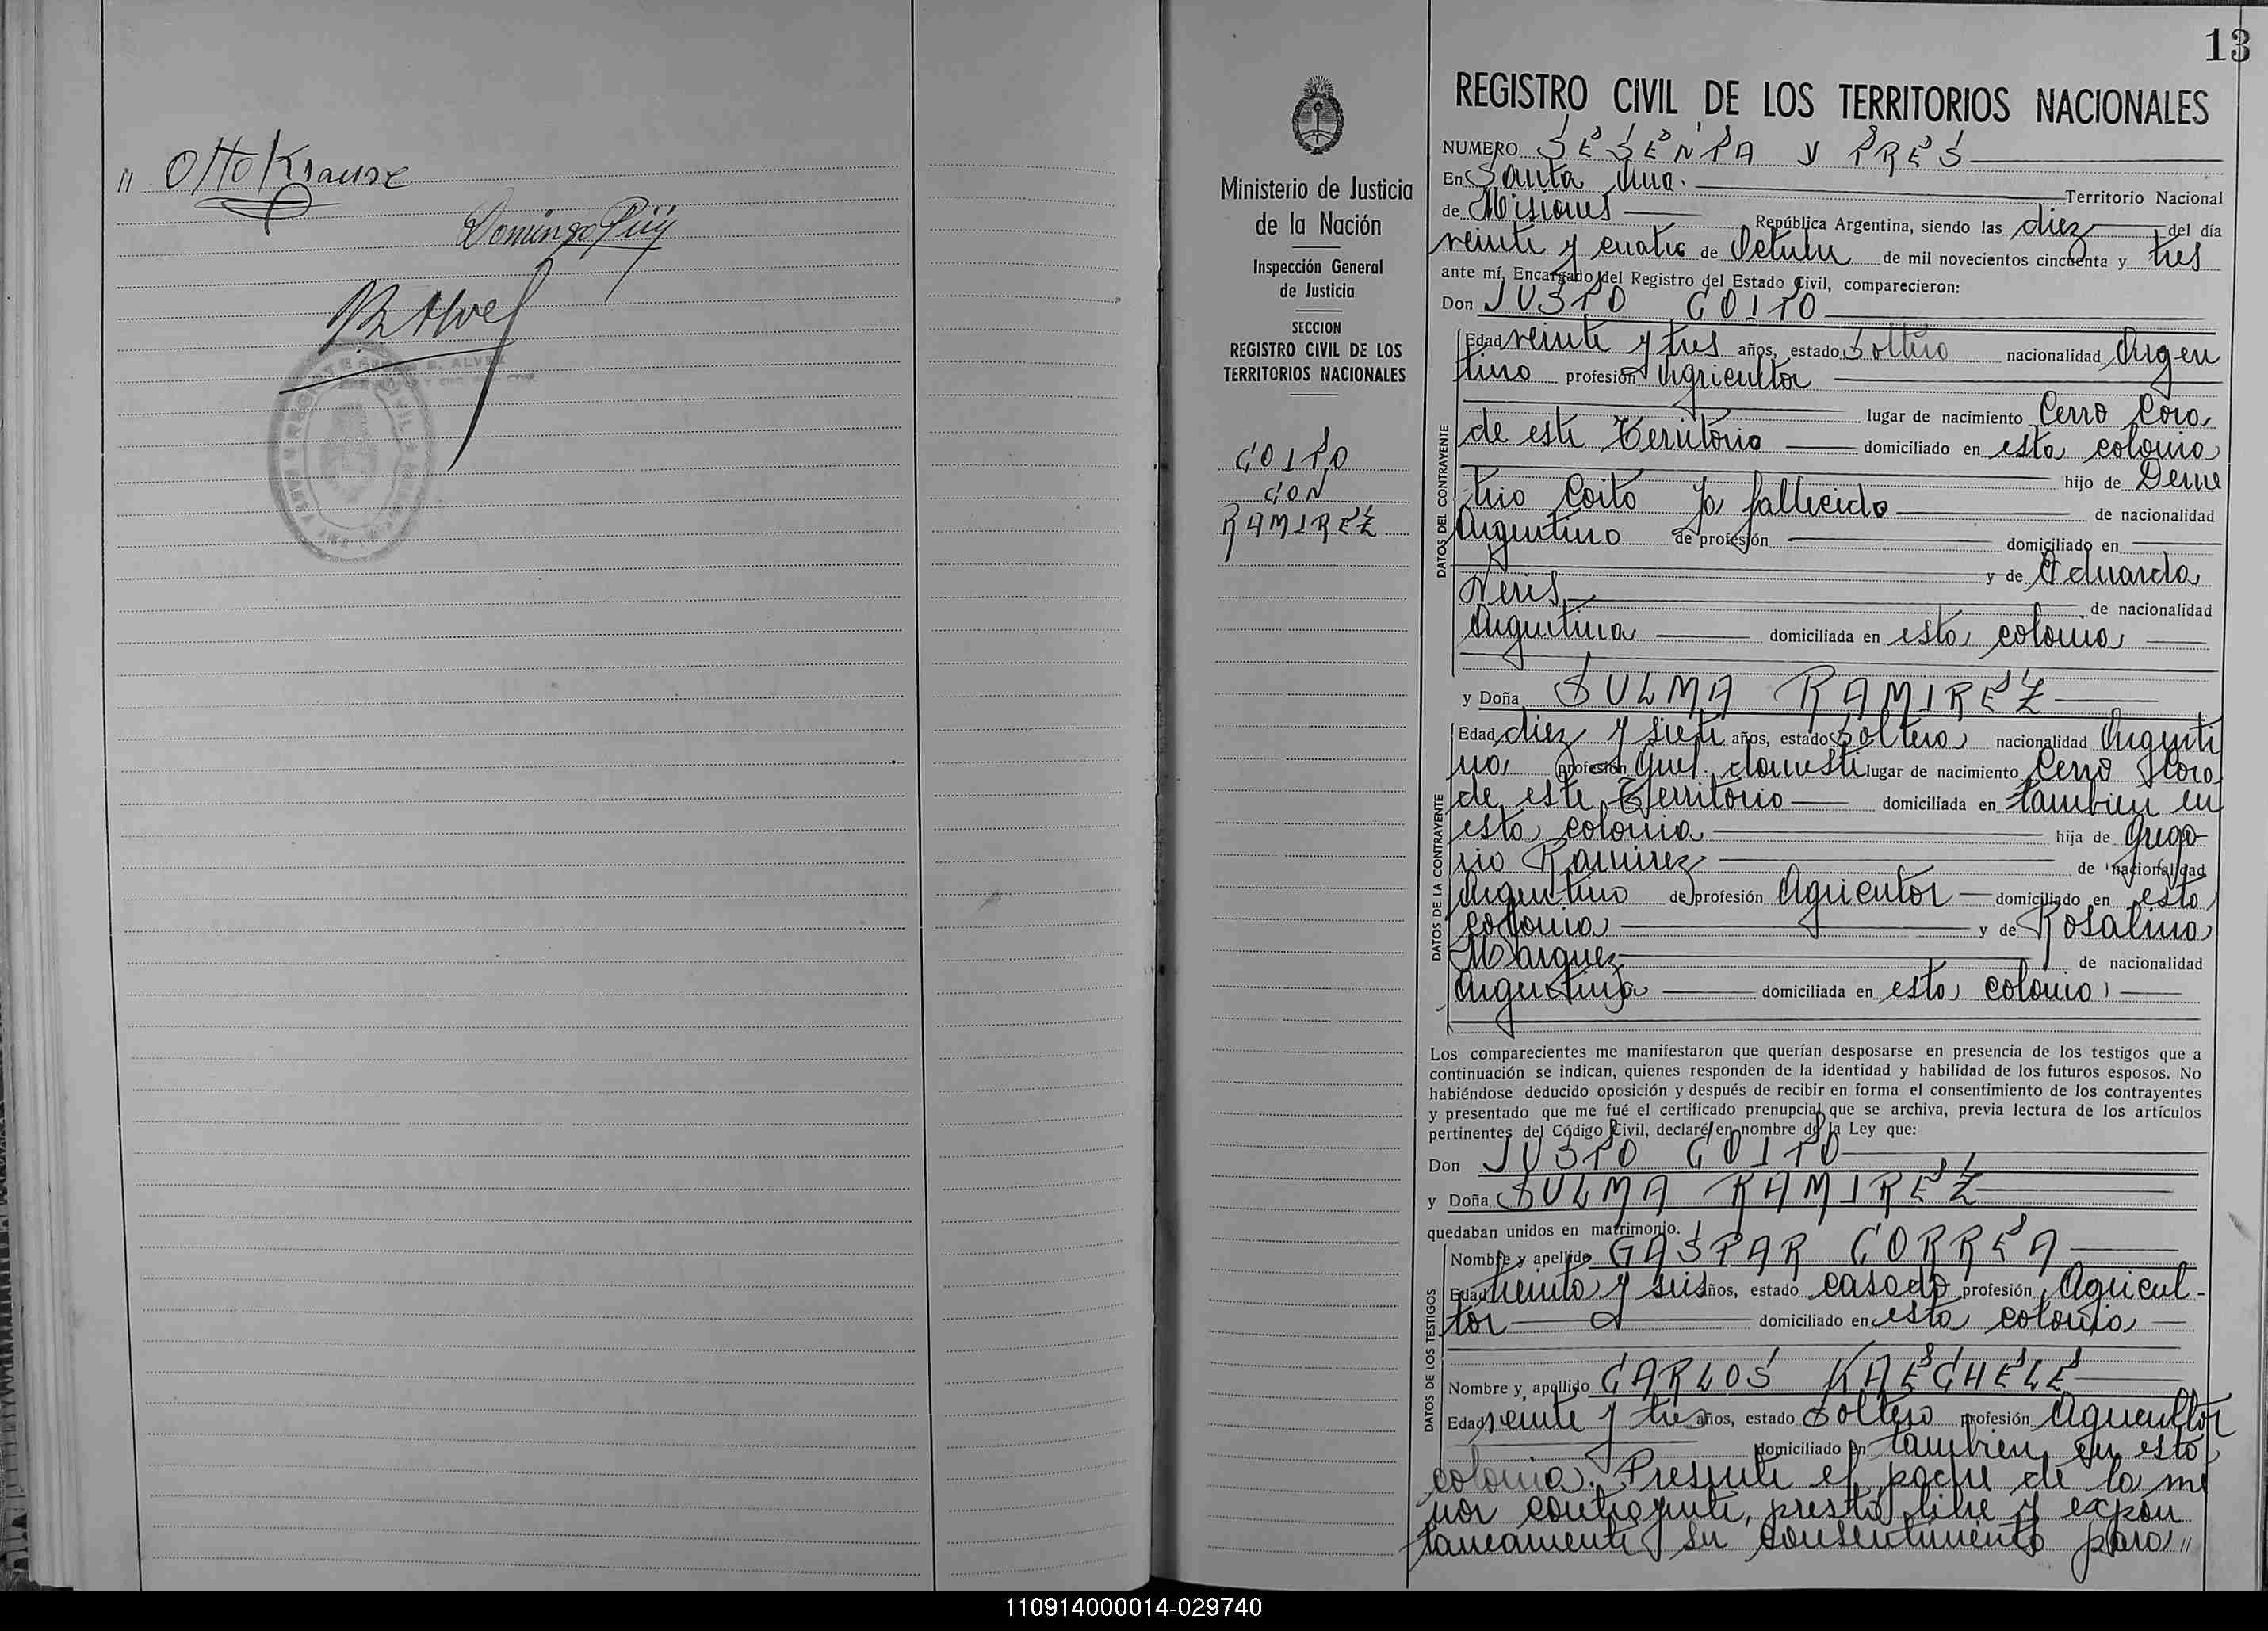 " Otto Krause
Domingo Püy
13
REGISTRO CIVIL DE LOS TERRITORIOS NACIONALES
Ministerio de Justicia
de la Nación
Inspección General
de Justicia
SECCION
REGISTRO CIVIL DE LOS
TERRITORIOS NACIONALES
COITO
CON
RAMIREZ
NUMERO SESENTA Y TRES
En Santa Ana. Territorio Nacional
de Misiones República Argentina, siendo las diez del día
veinte y cuatro de Octubre de mil novecientos cincuenta y tres
ante mí, Encargado del Registro del Estado Civil, comparecieron:
Don JUSTO COITO
DATOS DEL CONTRAYENTE
Edad veinte y tres años, estado Soltero nacionalidad Argen
tino profesión Agricultor
lugar de nacimiento Cerro Cora
de este Territorio domiciliado en esta colonia
hijo de Deme
trio Coito ya fallecido de nacionalidad
Argentino de profesión domiciliado en
y de Eduarda
Neris de nacionalidad
Argentina domiciliada en esta colonia
y Doña SULMA RAMIREZ
DATOS DE LA CONTRAYENTE
Edad diez y siete años, estado Soltera nacionalidad Argenti
na profesión Quel. domesti lugar de nacimiento Cerro Cora
de este Territorio domiciliada en tambien en
esta colonia hija de Grego-
rio Ramirez de nacionalidad
Argentino de profesión Agricultor domiciliado en esta
colonia y de Rosalina
Marquez de nacionalidad
Argentina domiciliada en esta colonia
Los comparecientes me manifestaron que querían desposarse en presencia de los testigos que a
continuación se indican, quienes responden de la identidad y habilidad de los futuros esposos. No
habiéndose deducido oposición y después de recibir en forma el consentimiento de los contrayentes
y presentado que me fué el certificado prenupcial que se archiva, previa lectura de los artículos
pertinentes del Código Civil, declaré en nombre de la Ley que:
Don JUSTO COITO
y Doña SULMA RAMIREZ
quedaban unidos en matrimonio.
DATOS DE LOS TESTIGOS
Nombre y apellido GASPAR CORREA
Edad treinta y seis años, estado casado profesión Agricul-
tor domiciliado en esta colonia
Nombre y apellido CARLOS KAECHELE
Edad veinte y tres años, estado Soltero profesión Agricultor
domiciliado en tambien en esta
colonia. Presente el padre de la me
nor contrayente, presta libre y expon
taneamente su consentimiento para "
110914000014-029740